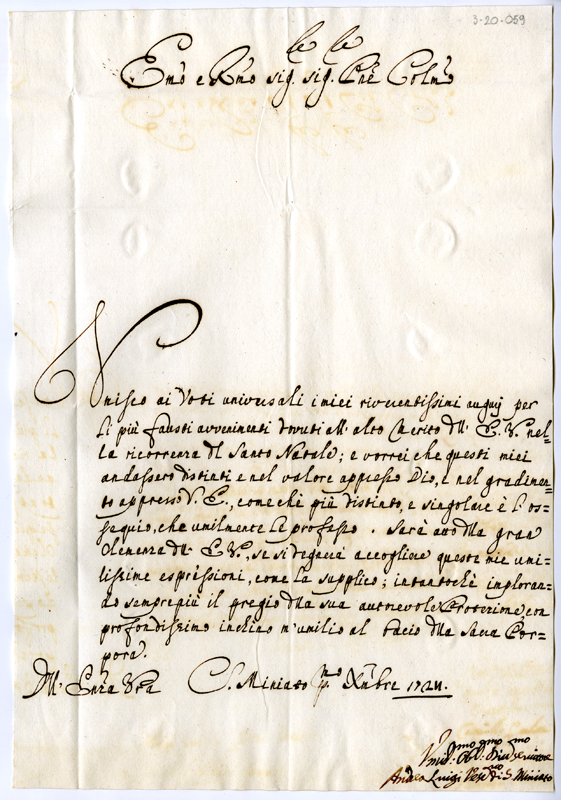 3-20-059
Em̃o e Rm̃o sig. sig. Pne Colmo
le le
Unisco ai Voti universali i miei riverentissimi augurj per
li più fausti avvenimenti dovuti all' alto Merito dll' E. V. nel=
la ricorrenza dl Santo Natale; e vorrei che questi miei
andassero distinti e nel valore appresso Dio, e nel gradimen=
to appresso V. E., come chè più distinto, e singolare è l'os=
sequio, che umilmente le professo. Sarà atto dlla gran
Clemenza dll' E. V., se si degnerà accogliere queste mie umi=
lissime espressioni, come la supplico; intantochè imploran=
do semprepiù il pregio dlla sua autorevole Protezione, con
profondissimo inchino m'umilio al bacio dlla Sacra Por=
pora.
Dll' Emza Vra S. Miniato pmo Xm̃bre 1724.
Umilmo Oblmo Divmo Servitore
Andrea Luigi Vescvo di S. Miniato